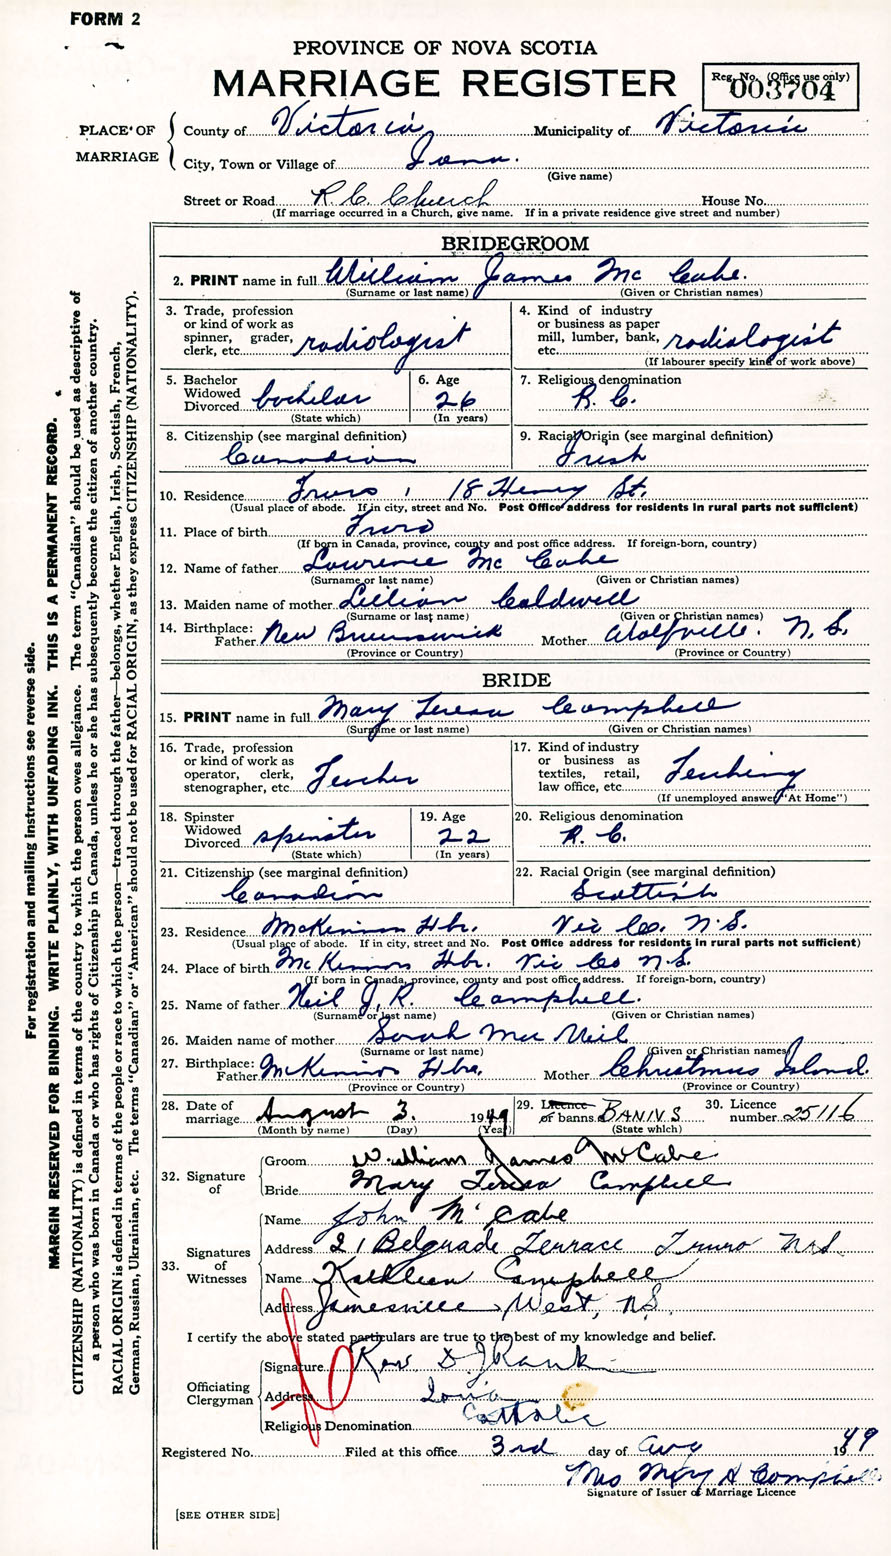 FORM 2
PROVINCE OF NOVA SCOTIA
MARRIAGE REGISTER
Reg. No. (Office use only)
003704
PLACE OF MARRIAGE
County of Victoria Municipality of Victoria
City, Town or Village of Iona.
(Give name)
Street or Road R.C. Church House No.
(If marriage occurred in a Church, give name. If in a private residence give street and number)
BRIDEGROOM
2. PRINT name in full William James Mc Cabe.
(Surname or last name) (Given or Christian names)
3. Trade, profession
or kind of work as
spinner, grader,
clerk, etc. radiologist
4. Kind of industry
or business as paper
mill, lumber, bank,
etc. radiologist
(If labourer specify kind of work above)
5. Bachelor
Widowed
Divorced bachelor
(State which)
6. Age
26
(In years)
7. Religious denomination
R.C.
8. Citizenship (see marginal definition)
Canadian
9. Racial Origin (see marginal definition)
Irish
10. Residence Truro, 18 Henry St.
(Usual place of abode. If in city, street and No. Post Office address for residents in rural parts not sufficient)
11. Place of birth Truro
(If born in Canada, province, county and post office address. If foreign-born, country)
12. Name of father Lawrence Mc Cabe
(Surname or last name) (Given or Christian names)
13. Maiden name of mother Lillian Caldwell
(Surname or last name) (Given or Christian names)
14. Birthplace:
Father New Brunswick Mother Wolfville. N.S.
(Province or Country) (Province or Country)
BRIDE
15. PRINT name in full Mary Teresa Campbell
(Surname or last name) (Given or Christian names)
16. Trade, profession
or kind of work as
operator, clerk,
stenographer, etc. Teacher
17. Kind of industry
or business as
textiles, retail,
law office, etc. Teaching
(If unemployed answer "At Home")
18. Spinster
Widowed
Divorced spinster
(State which)
19. Age
22
(In years)
20. Religious denomination
R.C.
21. Citizenship (see marginal definition)
Canadian
22. Racial Origin (see marginal definition)
Scottish
23. Residence McKinnon Hbr. Vic Co. N.S.
(Usual place of abode. If in city, street and No. Post Office address for residents in rural parts not sufficient)
24. Place of birth McKinnons Hbr. Vic Co N.S.
(If born in Canada, province, county and post office address. If foreign-born, country)
25. Name of father Neil J. R. Campbell.
(Surname or last name) (Given or Christian names)
26. Maiden name of mother Sarah Mac Neil
(Surname or last name) (Given or Christian names)
27. Birthplace:
Father McKinnon Hbr. Mother Christmas Island.
(Province or Country) (Province or Country)
28. Date of
marriage August 3. 1949
(Month by name) (Day) (Year)
29. Licence
or banns BANNS
(State which)
30. Licence
number 25116
32. Signature of
Groom William James McCabe
Bride Mary Teresa Campbell
33. Signatures of Witnesses
Name John McCabe
Address 21 Belgrade Terrace Truro N.S.
Name Kathleen Campbell
Address Jamesville West, NS
I certify the above stated particulars are true to the best of my knowledge and belief.
Officiating Clergyman
Signature Rev D J Rankin
Address Iona
Religious Denomination Catholic
Registered No. Filed at this office 3rd day of Aug 1949
Mrs Mary A Campbell
Signature of Issuer of Marriage Licence
[SEE OTHER SIDE]
For registration and mailing instructions see reverse side.
MARGIN RESERVED FOR BINDING. WRITE PLAINLY, WITH UNFADING INK. THIS IS A PERMANENT RECORD.
CITIZENSHIP (NATIONALITY) is defined in terms of the country to which the person owes allegiance. The term "Canadian" should be used as descriptive of
a person who was born in Canada or who has rights of Citizenship in Canada, unless he or she has subsequently become the citizen of another country.
RACIAL ORIGIN is defined in terms of the people or race to which the person—traced through the father—belongs, whether English, Irish, Scottish, French,
German, Russian, Ukrainian, etc. The terms "Canadian" or "American" should not be used for RACIAL ORIGIN, as they express CITIZENSHIP (NATIONALITY).